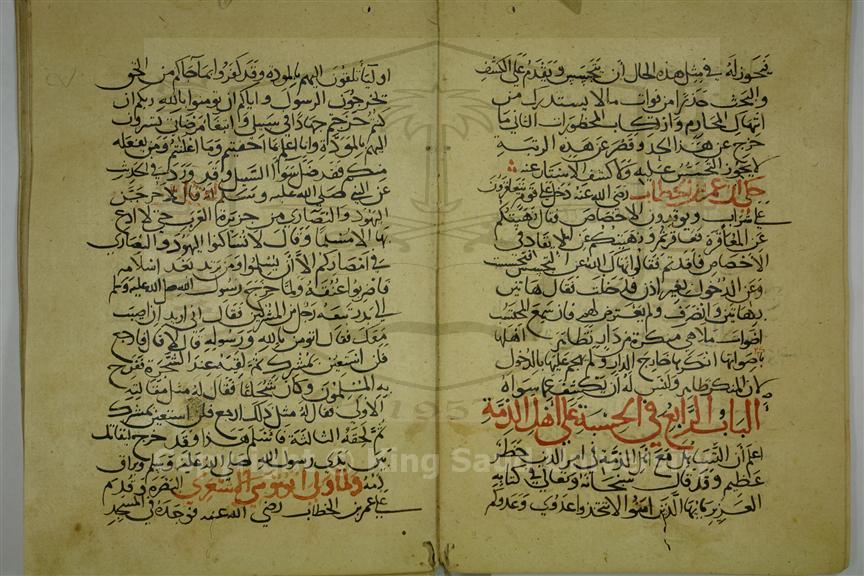 فيجوز له في مثل هذه الحال أن يتجسس ويقدم على الكشف
والبحث حذرا من فوات ما لا يستدرك من
انتهاك المحارم وارتكاب المحظورات الثاني ما
خرج عن هذا الحد وقصر عن هذه الرتبة
فلا يجوز التجسس عليه ولا كشف الاستار عنه
حكي ان عمر بن الخطاب رضي الله عنه دخل على قوم يتعاقرون
على شراب ويوقدون في الاخصاص فقال نهيتكم
عن المعاقرة فعاقرتم ونهيتكم عن الايقاد في
الاخصاص فاوقدتم فقالوا نهاك الله عن التجسس فتجسست
وعن الدخول بغير اذن فدخلت فقال هاتين
بهاتين وانصرف ولم يعترض لهم فان سمع المحتسب
اصوات ملاهي منكرة من دار تظاهر اهلها
باصواتها انكرها خارج الدار ولم يهجم عليها بالدخول
لان المنكر ظاهر وليس له ان يكشف عما سواه
الباب الرابع في الحسبة على اهل الذمة
اعلم أن
عظيم وقد قال الله سبحانه وتعالى في كتابه
العزيز يا ايها الذين امنوا لا تتخذوا عدوي وعدوكم
اوليا تلقون اليهم بالمودة وقد كفروا بما جاكم من الحق
يخرجون الرسول واياكم ان تومنوا بالله ربكم ان
كنتم خرجتم جهادا في سبيلي وابتغا مرضاتي تسرون
اليهم بالمودة وانا اعلم بما اخفيتم وما اعلنتم ومن يفعله
منكم فقد ضل سوا السبيل وقد ورد في الحديث
عن النبي صلى الله عليه وسلم انه قال لاخرجن
اليهود والنصارى من جزيرة العرب حتى لا ادع
بها الا مسلما وقال لا تساكنوا اليهود والنصارى
في امصاركم الا أن يسلموا ومن يرتد بعد اسلامه
فاضربوا عنقه ولما خرج رسول الله صلى الله عليه وسلم
الى بدر تبعه رجل من المشركين فقال اني اريد ان اصيب
معك فقال تومن بالله ورسوله قال لا قال فارجع
فلن استعين بمشرك ثم لقيه عند الشجرة ففرح
به المسلمون وكان شجاعا فقال له مثل مقالته
الاولى فقال له مثل ذلك ارجع فلن استعين بمشرك
ثم لحقه الثالثة فاسلم هذا وقد خرج ليقاتل
بين يدي رسول الله صلى الله عليه وسلم ويراق
دمه ولما ولي ابو موسى الاشعري البصرة وقدم
على عمر بن الخطاب رضي الله عنه فوجده في المسجد
1957
Copyright © King Saud University